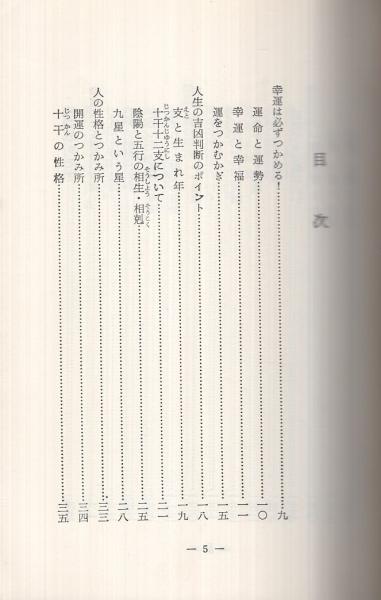 目次
幸運は必ずつかめる!……九
運命と運勢……一〇
幸運と幸福……一一
運をつかむかぎ……一五
人生の吉凶判断のポイント……一八
支と生まれ年……一九
えと
十干十二支について……二一
じっかんじゅうにし
陰陽と五行の相生・相剋……二五
そうしょう そうこく
九星という星……二八
人の性格とつかみ所……三三
開運のつかみ所……三四
十干の性格……三五
じっかん
— 5 —